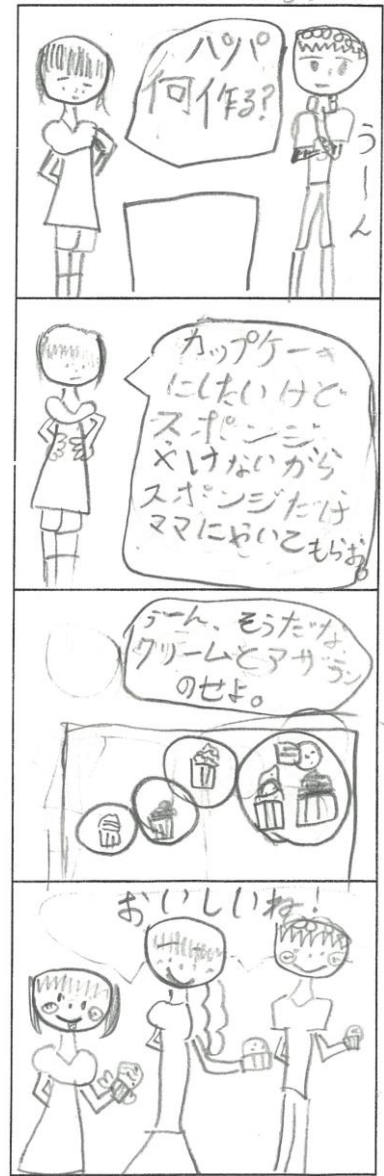 パパ
何作る?
うーん
カップケーキ
にしたいけど
スポンジ
やけないから
スポンジだけ
ママにやいてもらお。
うーん、そうだな、
クリームとアザラン
のせよ。
おいしいね!